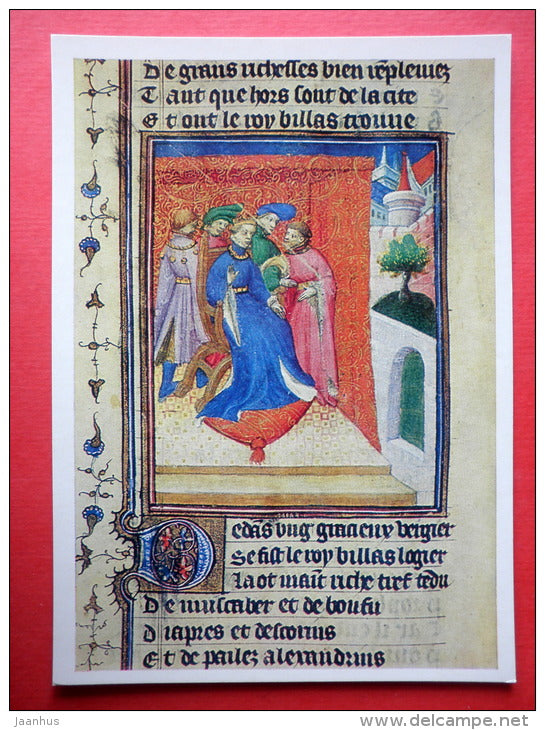 De grans richesses bien rēpleniez
Tant que hors sont de la cite
Et ont le roy billas trouue
Dedās vng gracieux vergier
Se fist le roy billas logier
La ot maīt riche tref tēdu
De musciber et de boufu
Diapres et descorius
Et de pailez alexandrins
Jaanhus
www.delcampe.net